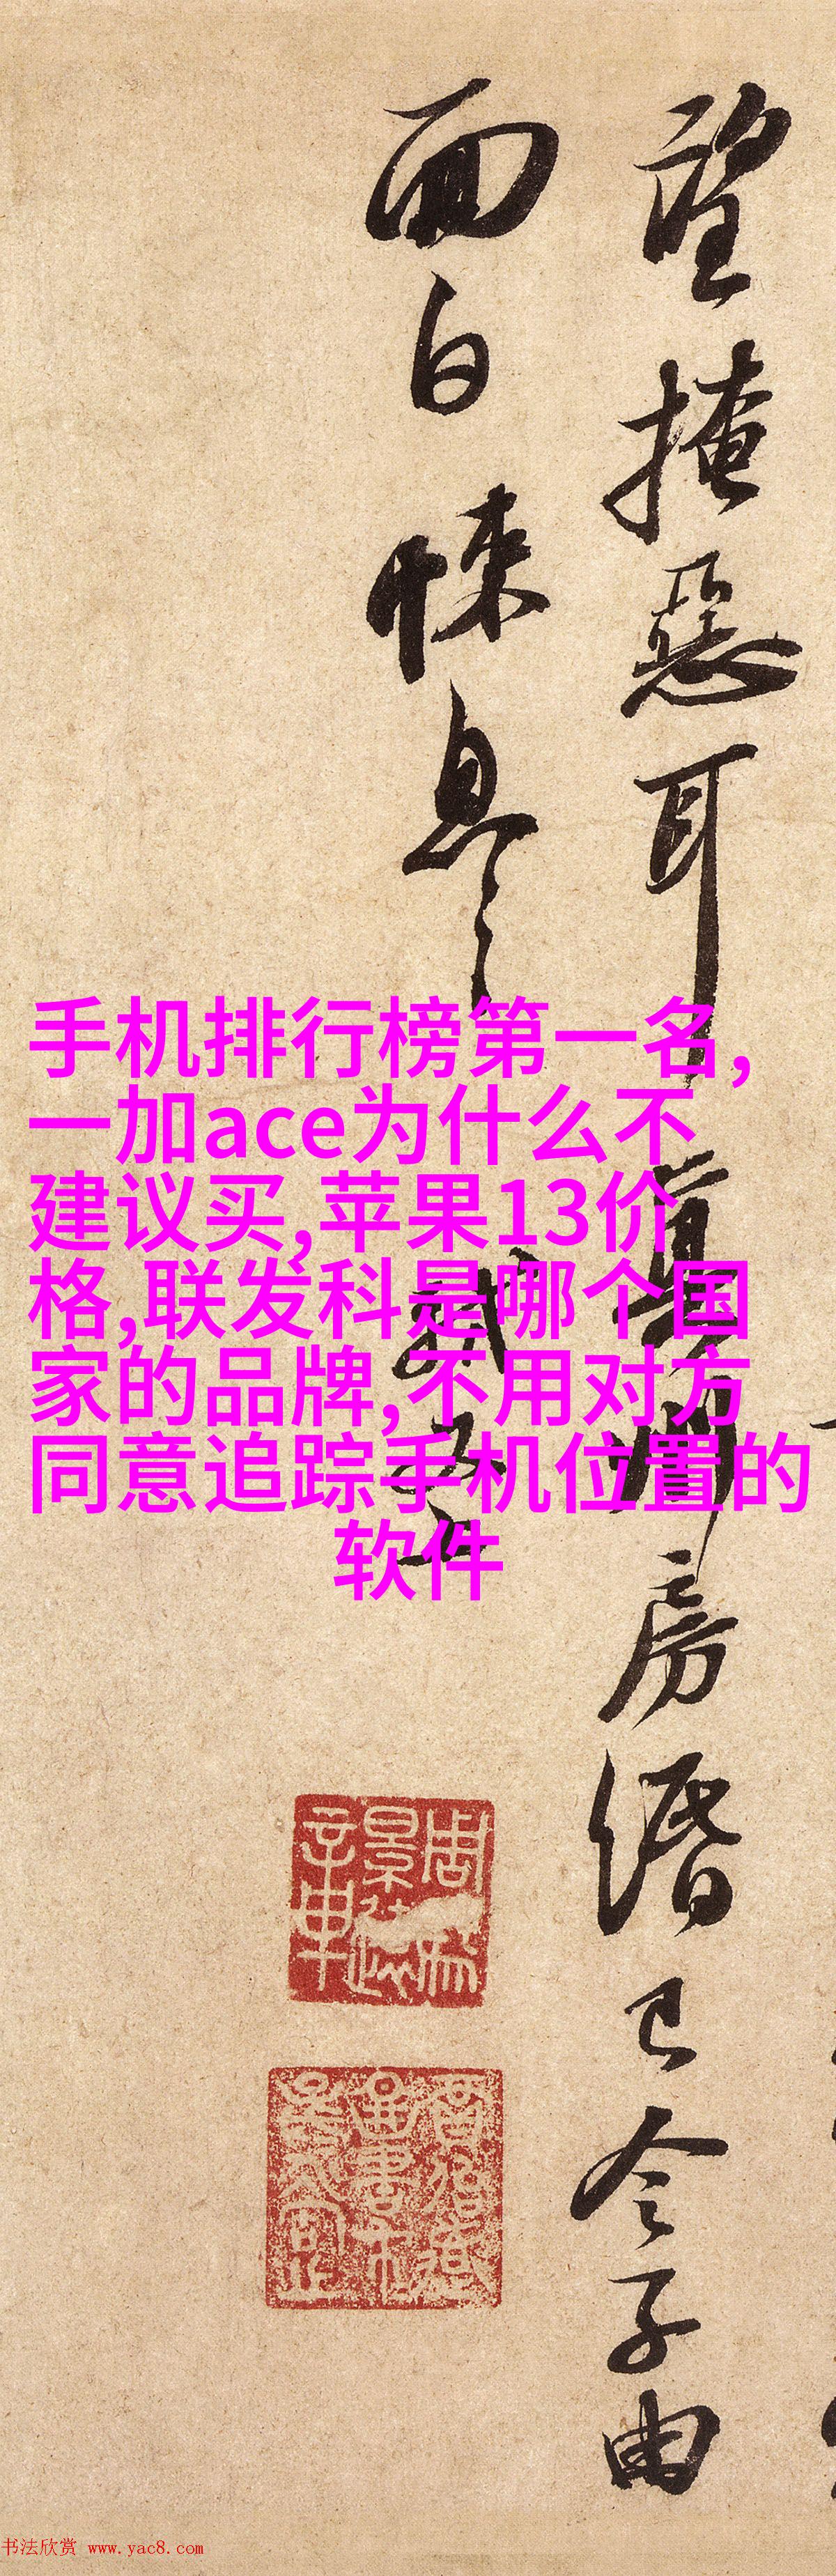 望掩惡耳真州房緡已令子由
面白悚息 軾又上
手机排行榜第一名,
一加ace为什么不
建议买,苹果13价
格,联发科是哪个国
家的品牌,不用对方
同意追踪手机位置的
软件
书法欣赏 www.yac8.com